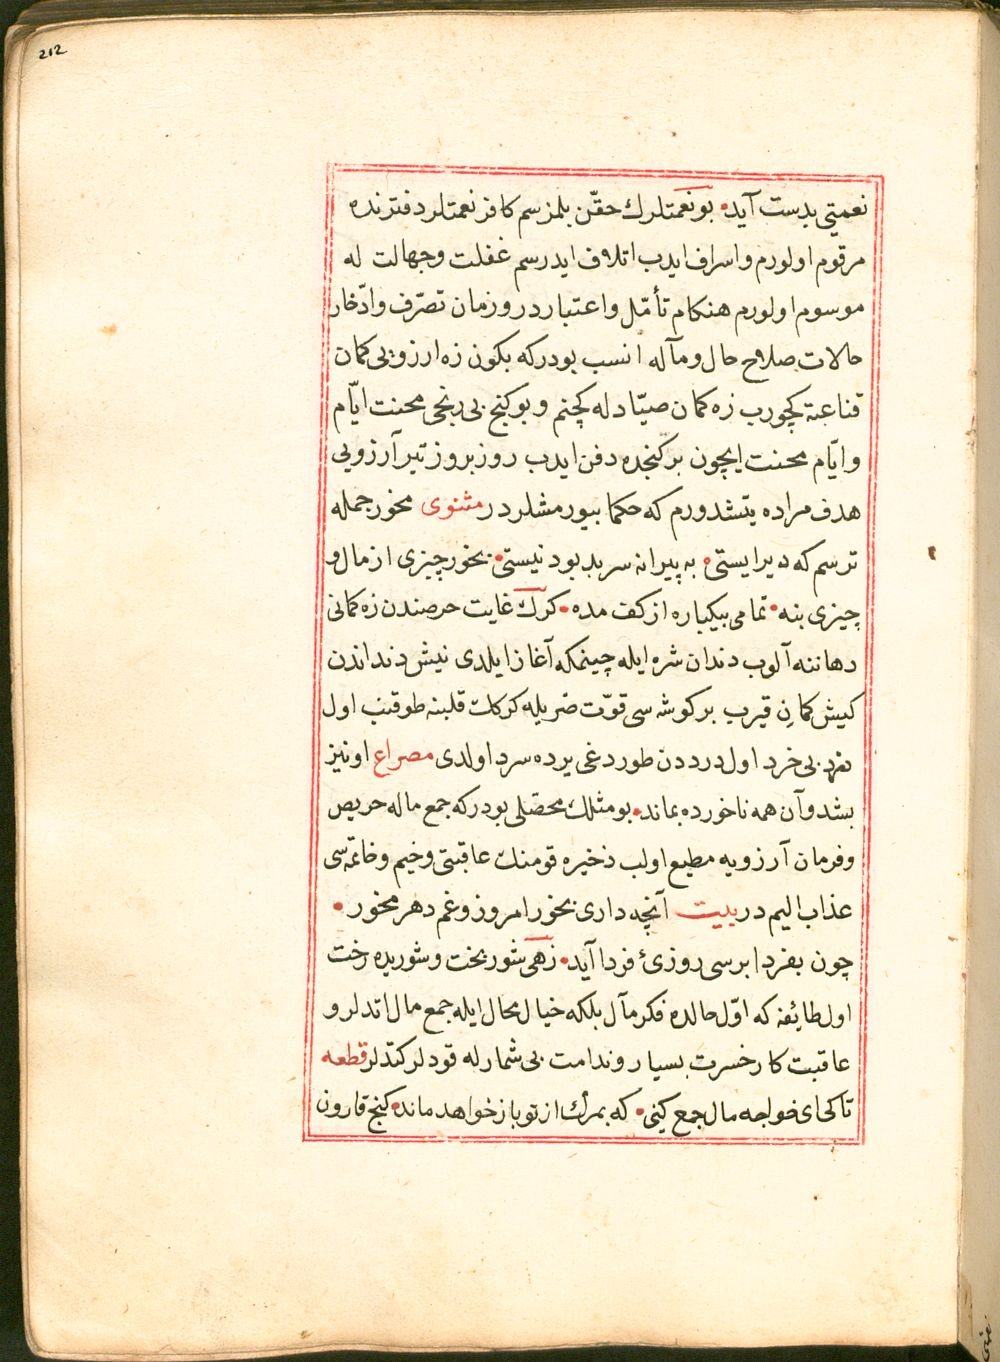 212
نعمیتی بدست آید • بو نعمتلرك حقّن بلمزسم كافر نعمتلر دفترنده
مرقوم اولورم و اسراف ایدب اتلاف ایدرسم غفلت و جهالت له
موسوم اولورم هنكام تأمّل و اعتباردر و زمان تصرّف و ادّخار
حالات صلاح حال و مآله انسب بودركه بكون زه ارزویی كمان
قناعته كچورب زه كمان صیّاد له كچنم و بو كنج بی رنجی محنت ایّام
و ایّام محنت ایچون بر كنجده دفن ایدب روز بروز تیر آرزویی
هدف مراده یتشدورم كه حكما بیورمشلردر مثنوی مخور جمله
ترسم كه دیر ایستی • به پیرانه سر بد بود نیستی • بخور چیزی از مال و
چیزی بنه • تمامی بیكباره از كف مده • كرك غایت حرصندن زه كمانی
دهاننه آلوب دندان شره ایله چینمكه آغاز ایلدی نیش دنداندن
كیش كمان قیرب بر كوشه سی قوّت ضربله كركك قلبنه طوقنب اول
بی خرد اول درددن طوردغی یرده سرد اولدی مصراع اونیز
بشد و آن همه ناخورده بماند • بو مثلك محصّلی بودركه جمع ماله حریص
و فرمان آرزویه مطیع اولب ذخیره قومنك عاقبتی وخیم و خاتمه سی
عذاب الیم در بیت آنچه داری بخور امروز و غم دهر مخور •
چون بفردا برسی روزیٔ فردا آید • زهی شوربخت و شوریده رخت
اول طایٔفه كه اوّل حالده فكر مآل بلكه خیال محال ایله جمع مال اتدلر و
عاقبت كار خسرت بسیار و ندامت بی شمار له قودلر كتدلر قطعه
تاكی ای خواجه مال جمع كنی • كه بمرك از تو باز خواهد ماند • كنج قارون